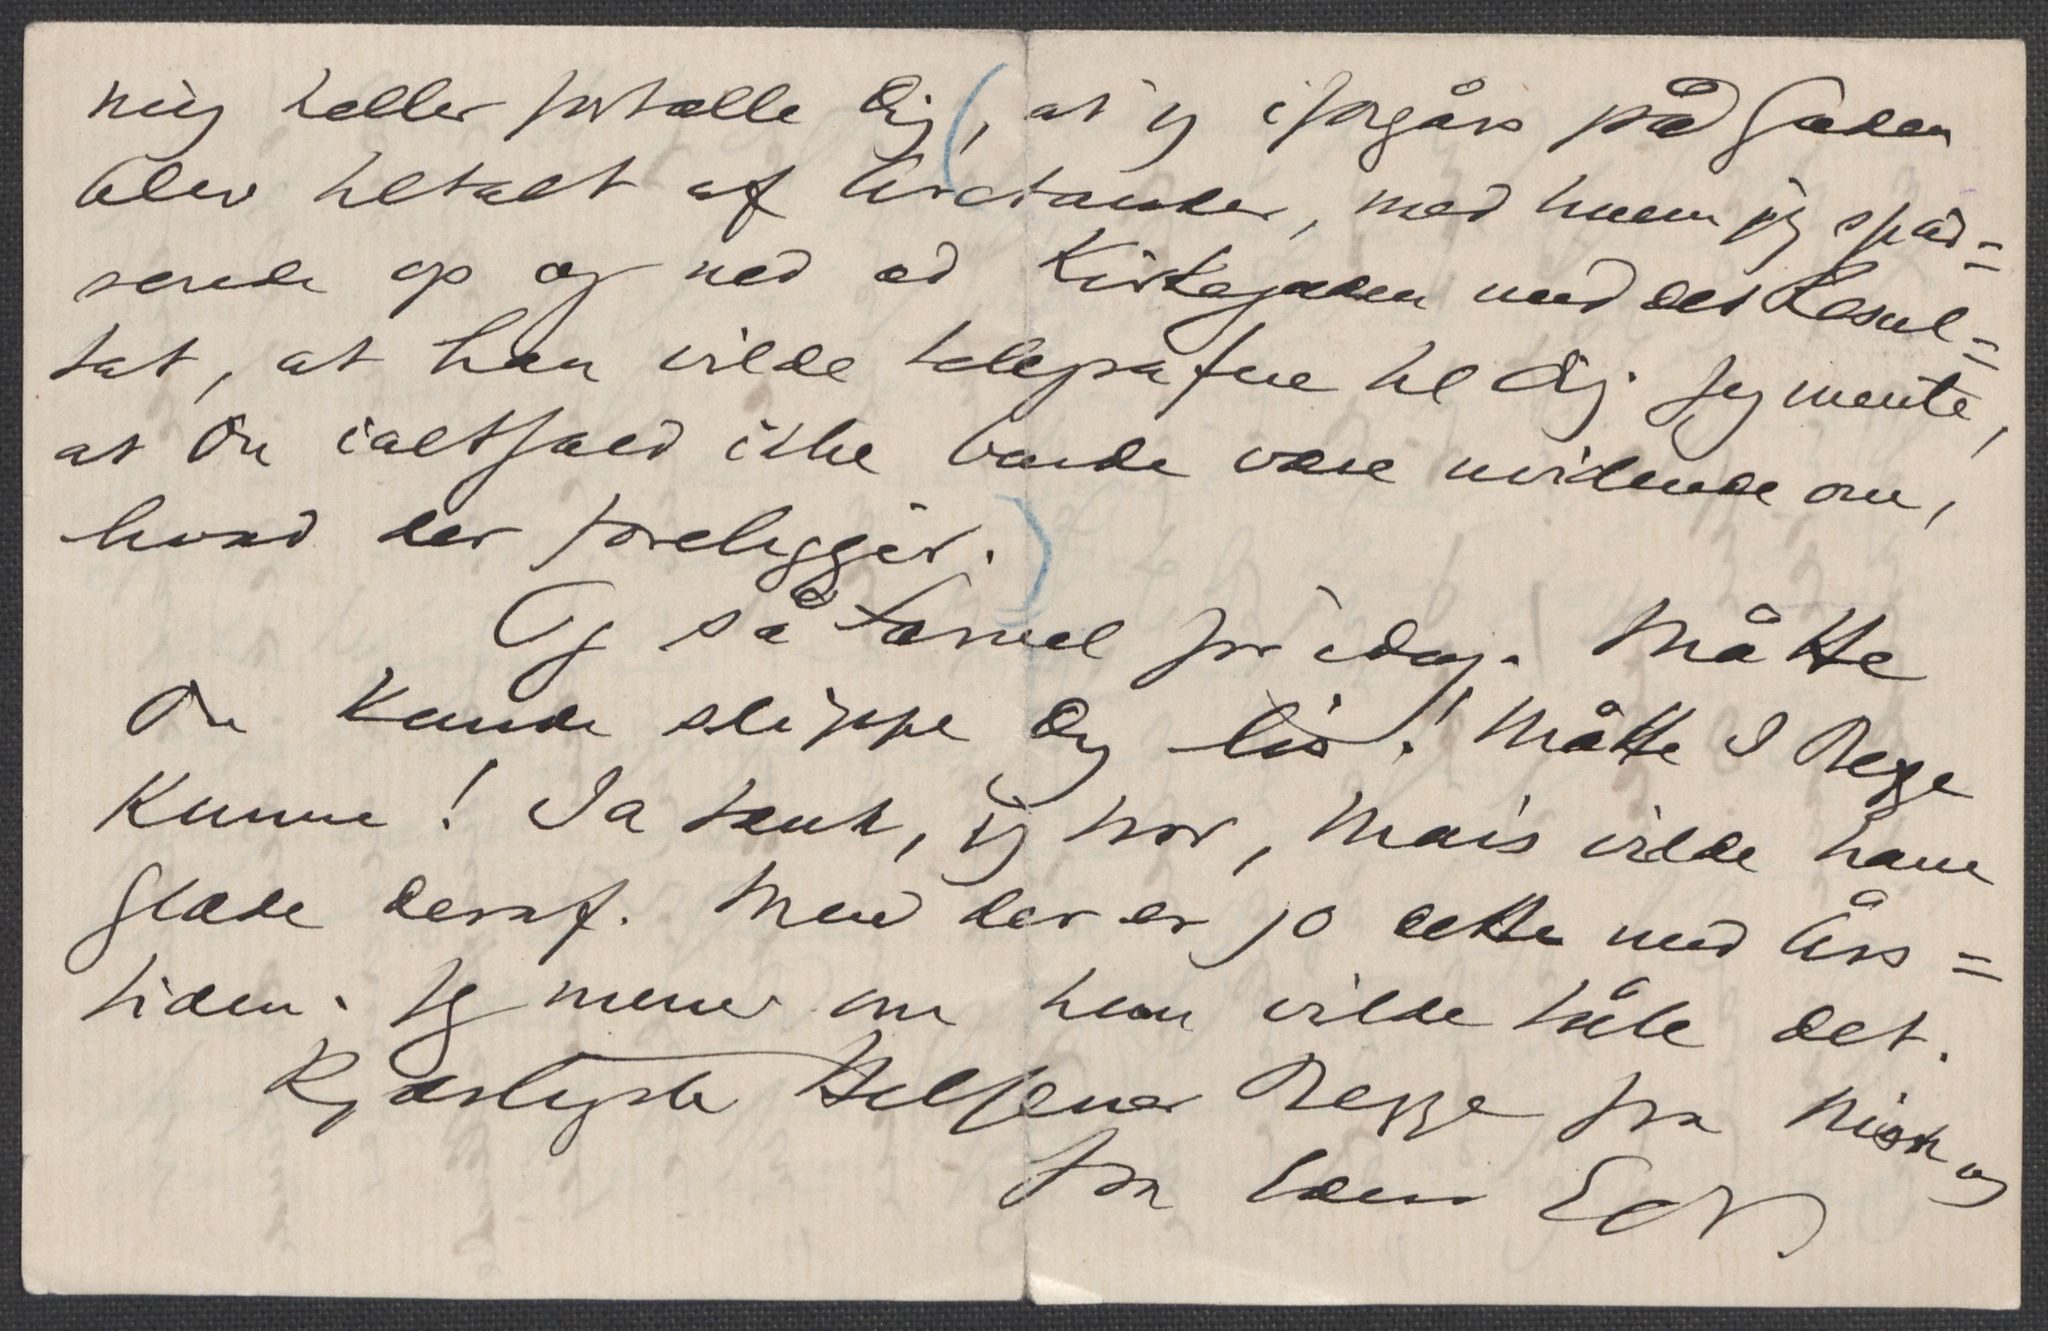 mig heller fortælle Dig, at jg iforgårs på Gaden
blev tiltalt af Arctander, med hvem jeg spad=
serede op og ned ad Kirkegaden med det Resul=
tat, at han vilde telegrafere til Dig. Jeg mente,
at Du ialtfald ikke burde være uvidende om,
hvad der foreligger.
Og så Farvel for idag. Måtte
Du kunde slippe Dig løs! Måtte I Begge
kunne! Ja tænk, jg tror, Mais vilde have
Glæde deraf. Men der er jo dette med Års=
tiden. Jg mener om hun vilde tåle det.
Kjærligste Hilsener Begge fra Nina og
fra Eders EdV.